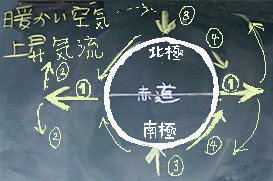 暖かい空気
上昇気流
③
北極
④
②
① 赤道 ①
②
南極
④
③